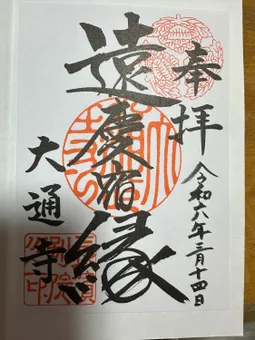 奉拝
令和八年三月十四日
遠慶宿縁
大通寺